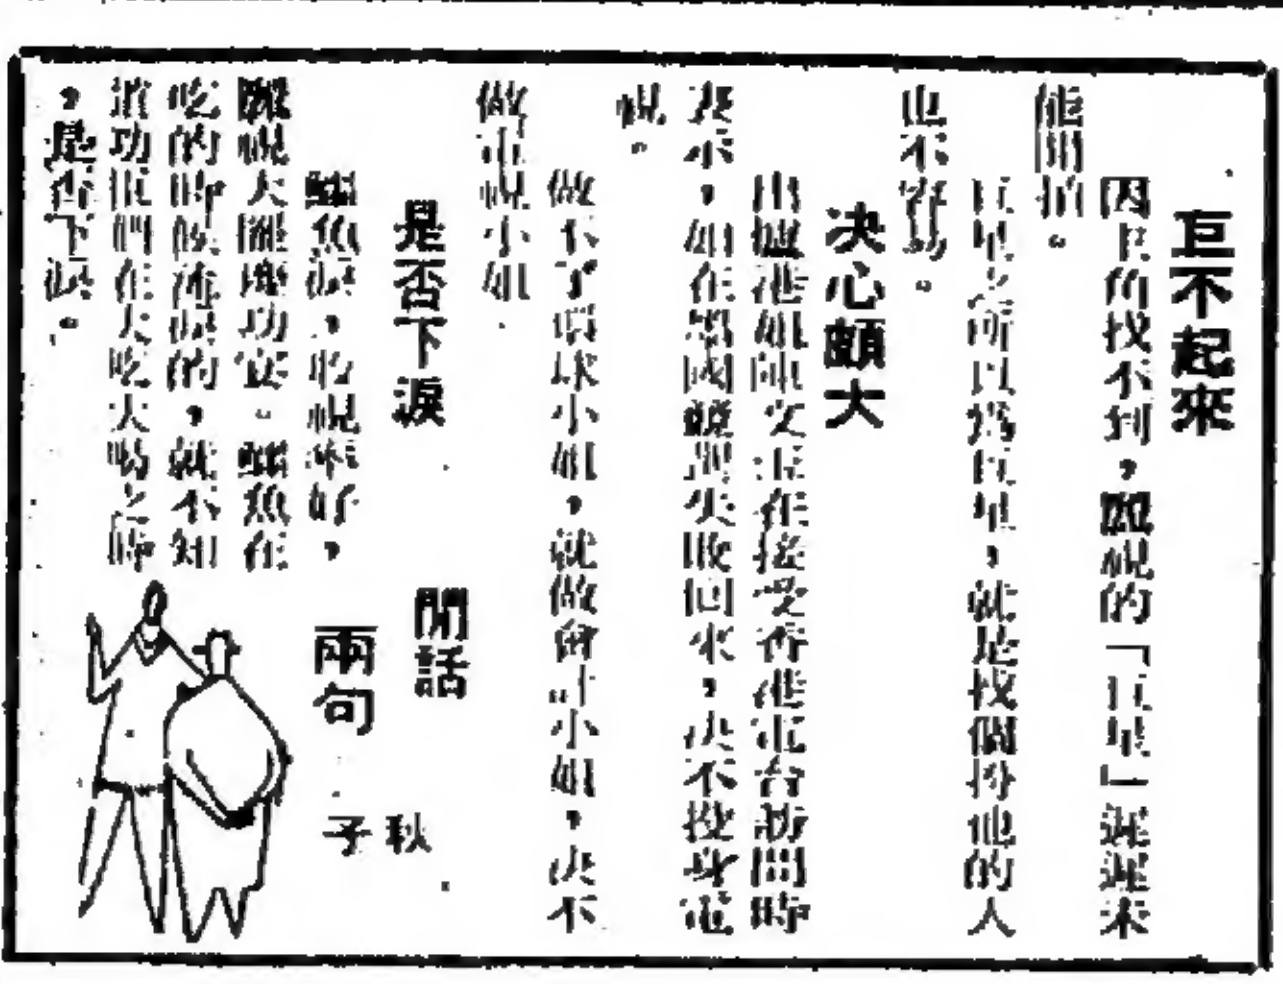 巨不起來
因主角找不到，麗視的「巨星」遲遲未
能開拍。
巨星之所以為巨星，就是找個扮他的人
也不容易。
決心頗大
出選港姐陳文玉在接受香港電台訪問時
表示，如在英國競選失敗回來，決不投身電
視。
做不了環球小姐，就做會計小姐，決不
做電視小姐
是否下淚
鱷魚淚，收視率好，
麗視大擺慶功宴。鱷魚在
吃的時候流淚的，就不知
道功臣們在大吃大喝之時
，是否下淚。
閒話
兩句
秋
子